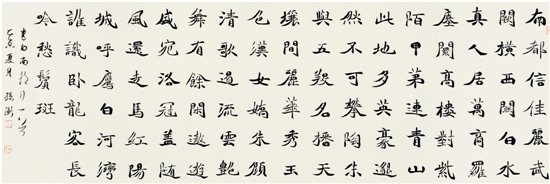 南都信佳麗武
闕橫西關白水
真人居萬商羅
廛闤高樓對紫
陌甲第連青山
此地多英豪邈
然不可攀陶朱
與五羖名播天
壤間麗華秀玉
色漢女嬌朱顏
清歌遏流雲艷
舞有餘閒遨遊
盛宛洛冠蓋隨
風還走馬紅陽
城呼鷹白河灣
誰識臥龍客長
吟愁鬢斑
李白南都行一首
夏月